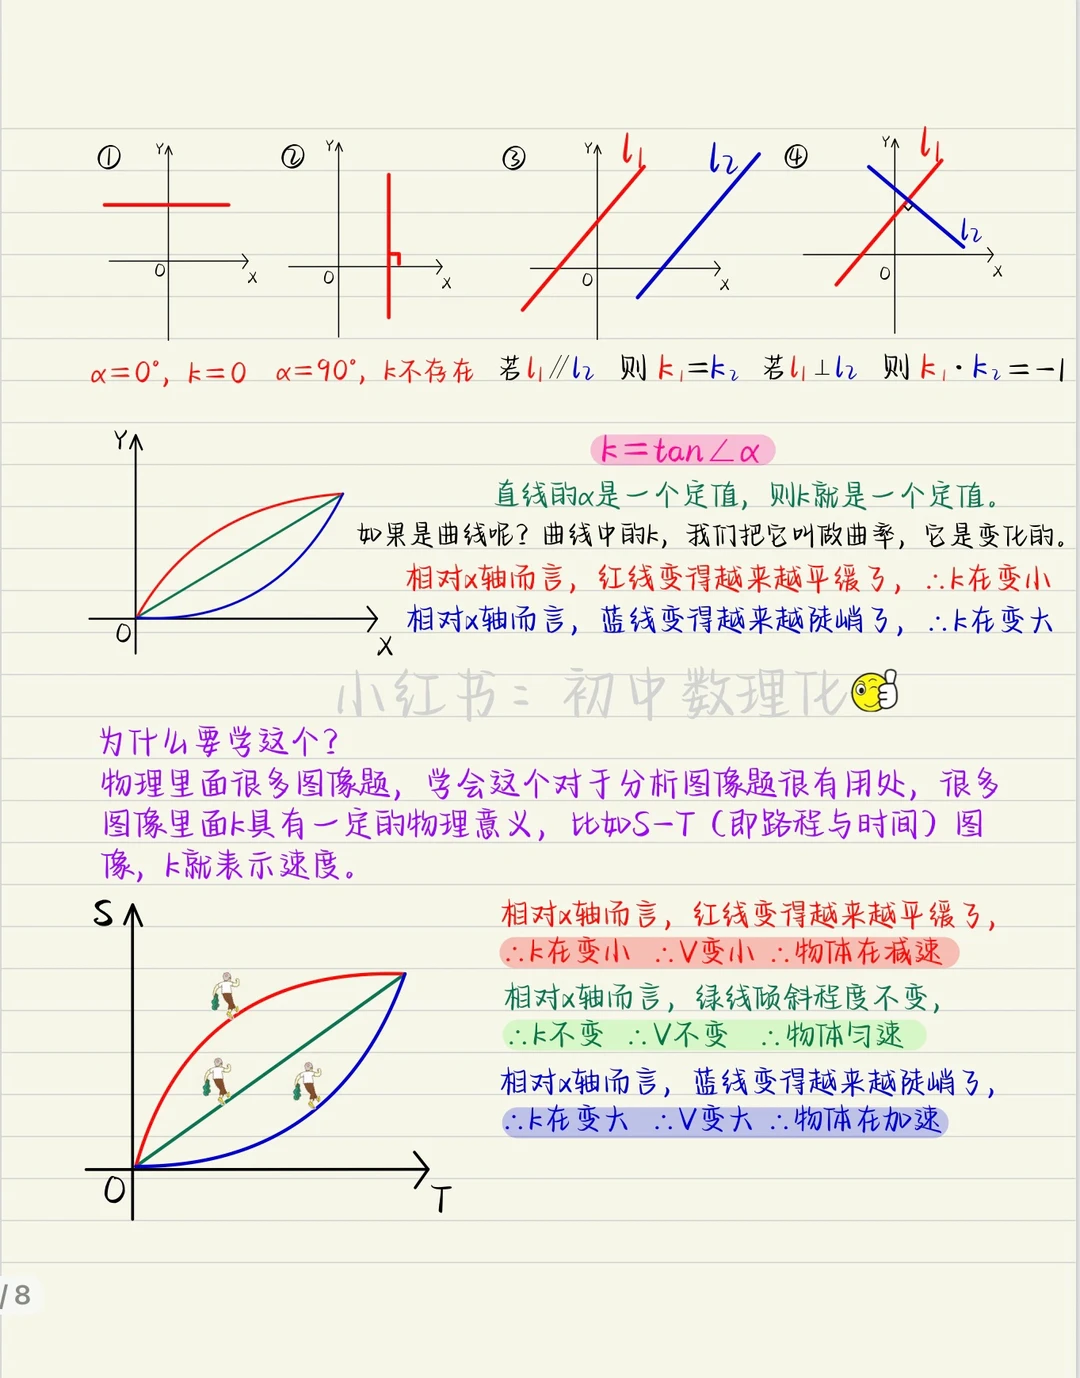 ① Y O X
② Y O X
③ Y l₁ l₂ O X
④ Y l₁ l₂ O X
α=0°, k=0
α=90°, k不存在
若l₁∥l₂ 则k₁=k₂
若l₁⊥l₂ 则k₁·k₂=-1
Y O X
k=tan∠α
直线的α是一个定值，则k就是一个定值。
如果是曲线呢？曲线中的k，我们把它叫做曲率，它是变化的。
相对x轴而言，红线变得越来越平缓了，∴k在变小
相对x轴而言，蓝线变得越来越陡峭了，∴k在变大
小红书：初中数理化
为什么要学这个？
物理里面很多图像题，学会这个对于分析图像题很有用处，很多
图像里面k具有一定的物理意义，比如S-T（即路程与时间）图
像，k就表示速度。
S O T
相对x轴而言，红线变得越来越平缓了，
∴k在变小 ∴V变小 ∴物体在减速
相对x轴而言，绿线倾斜程度不变，
∴k不变 ∴V不变 ∴物体匀速
相对x轴而言，蓝线变得越来越陡峭了，
∴k在变大 ∴V变大 ∴物体在加速
/ 8